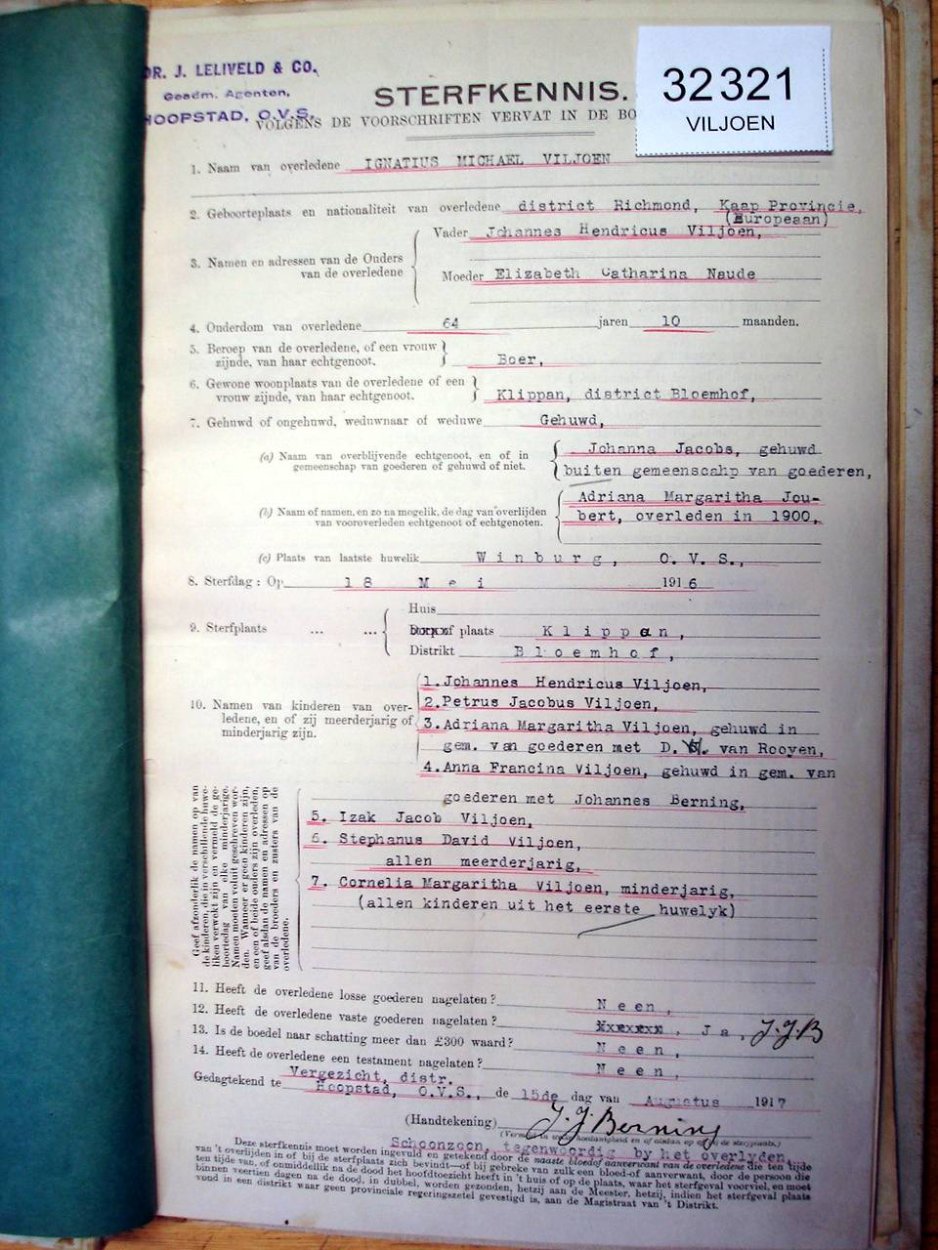 DR. J. LELIVELD & CO.,
Geadm. Agenten,
HOOPSTAD, O.V.S.
32321
VILJOEN
STERFKENNIS.
VOLGENS DE VOORSCHRIFTEN VERVAT IN DE BO
1. Naam van overledene IGNATIUS MICHAEL VILJOEN
2. Geboorteplaats en nationaliteit van overledene district Richmond, Kaap Provincie,
(Europeaan)
Vader Johannes Hendricus Viljoen,
3. Namen en adressen van de Ouders
van de overledene
Moeder Elizabeth Catharina Naude
4. Onderdom van overledene 64 jaren 10 maanden.
5. Beroep van de overledene, of een vrouw
zijnde, van haar echtgenoot. Boer,
6. Gewone woonplaats van de overledene of een
vrouw zijnde, van haar echtgenoot. Klippan, district Bloemhof,
7. Gehuwd of ongehuwd, weduwnaar of weduwe Gehuwd,
(a) Naam van overblijvende echtgenoot, en of in
gemeenschap van goederen of gehuwd of niet.
Johanna Jacobs, gehuwd
buiten gemeenscahp van goederen,
(b) Naam of namen, en zo na mogelik, de dag van overlijden
van vooroverleden echtgenoot of echtgenoten.
Adriana Margaritha Jou-
bert, overleden in 1900,
(c) Plaats van laatste huwelik Winburg, O.V.S.,
8. Sterfdag : Op 18 Mei 1916
Huis
9. Sterfplaats ... ... of plaats Klippan,
Distrikt Bloemhof,
10. Namen van kinderen van over-
ledene, en of zij meerderjarig of
minderjarig zijn.
1. Johannes Hendricus Viljoen,
2. Petrus Jacobus Viljoen,
3. Adriana Margaritha Viljoen, gehuwd in
gem. van goederen met D. van Rooyen,
4. Anna Francina Viljoen, gehuwd in gem. van
goederen met Johannes Berning,
5. Izak Jacob Viljoen,
6. Stephanus David Viljoen,
allen meerderjarig,
7. Cornelia Margaritha Viljoen, minderjarig,
(allen kinderen uit het eerste huwelyk)
Geef afzonderlik de namen op van
de kinderen, die in verschillende huwe-
liken verwekt zijn en vermeld de ge-
boortedag van elke minderjarige.
Namen moeten voluit geschreven wor-
den. Wanneer er geen kinderen zijn,
en een of beide ouders zijn overleden,
geef alsdan de namen en adressen op
van de broeders en zusters van de
overledene.
11. Heeft de overledene losse goederen nagelaten? Neen,
12. Heeft de overledene vaste goederen nagelaten? xxxxxx, Ja, J.J.B
13. Is de boedel naar schatting meer dan £300 waard? Neen,
14. Heeft de overledene een testament nagelaten? Neen,
Vergezicht, distr.
Gedagtekend te Hoopstad, O.V.S., de 15de dag van Augustus 1917
(Handtekening) J. J. Berning
Schoonzoon, tegenwoordig by het overlyden,
Deze sterfkennis moet worden ingevuld en getekend door de naaste bloed of aanverwant van de overledene die ten tijde
van 't overlijden in of bij de sterfplaats zich bevindt—of bij gebreke van zulk een bloed-of aanverwant, door de persoon die
ten tijde van, of onmiddellik na de dood het hoofdtoezicht heeft in 't huis of op de plaats, waar het sterfgeval voorviel, en moet
binnen veertien dagen na de dood, in dubbel, worden gezonden, hetzij aan de Meester, hetzij, indien het sterfgeval plaats
vond in een distrikt waar geen provinciale regeringszetel gevestigd is, aan de Magistraat van 't Distrikt.